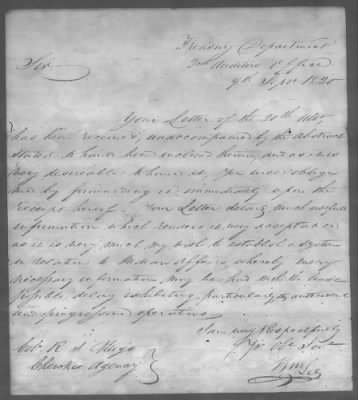 Treasury Department
2nd Auditors Office
9th Septr 1820
Sir
Your Letter of the 20th Ulto
has been received, unaccompanied by the Abstract
stated to have been inclosed therein, and as it is
very desirable to have it, you will oblige
me by forwarding it immediately upon the
receipt hereof. Your Letter details much useful
information which renders it very acceptable
as it is very much my wish to establish a system
in relation to Indian Affairs, whereby every
necessary information may be had with the least
possible delay exhibiting, particularly the
and progressive operations
I am very Respectfully
Yr Obt Servt
Wm Lee
Col. R. J. Meigs
Cherokee Agency